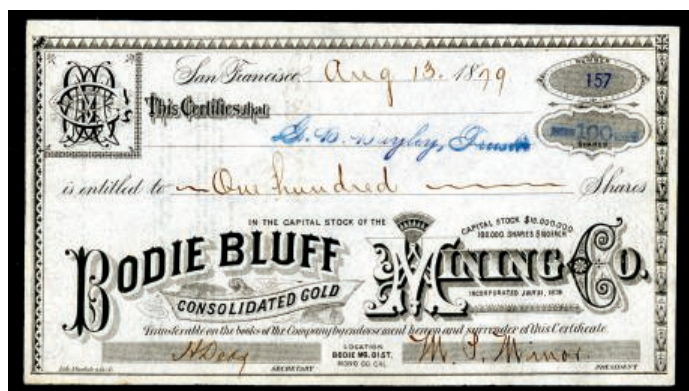 San Francisco, Aug 13. 1879
NUMBER
157
This Certifies that
G. B. Bayley, Trustee
100
SHARES
is entitled to One hundred Shares
IN THE CAPITAL STOCK OF THE
CAPITAL STOCK $10,000,000.
100,000 SHARES $100 EACH
BODIE BLUFF
CONSOLIDATED GOLD
MINING CO.
INCORPORATED
Transferable on the books of the Company by endorsement hereon and surrender of this Certificate.
SECRETARY
LOCATION
BODIE MG. DIST.
MONO CO. CAL.
M. S. Minor
PRESIDENT